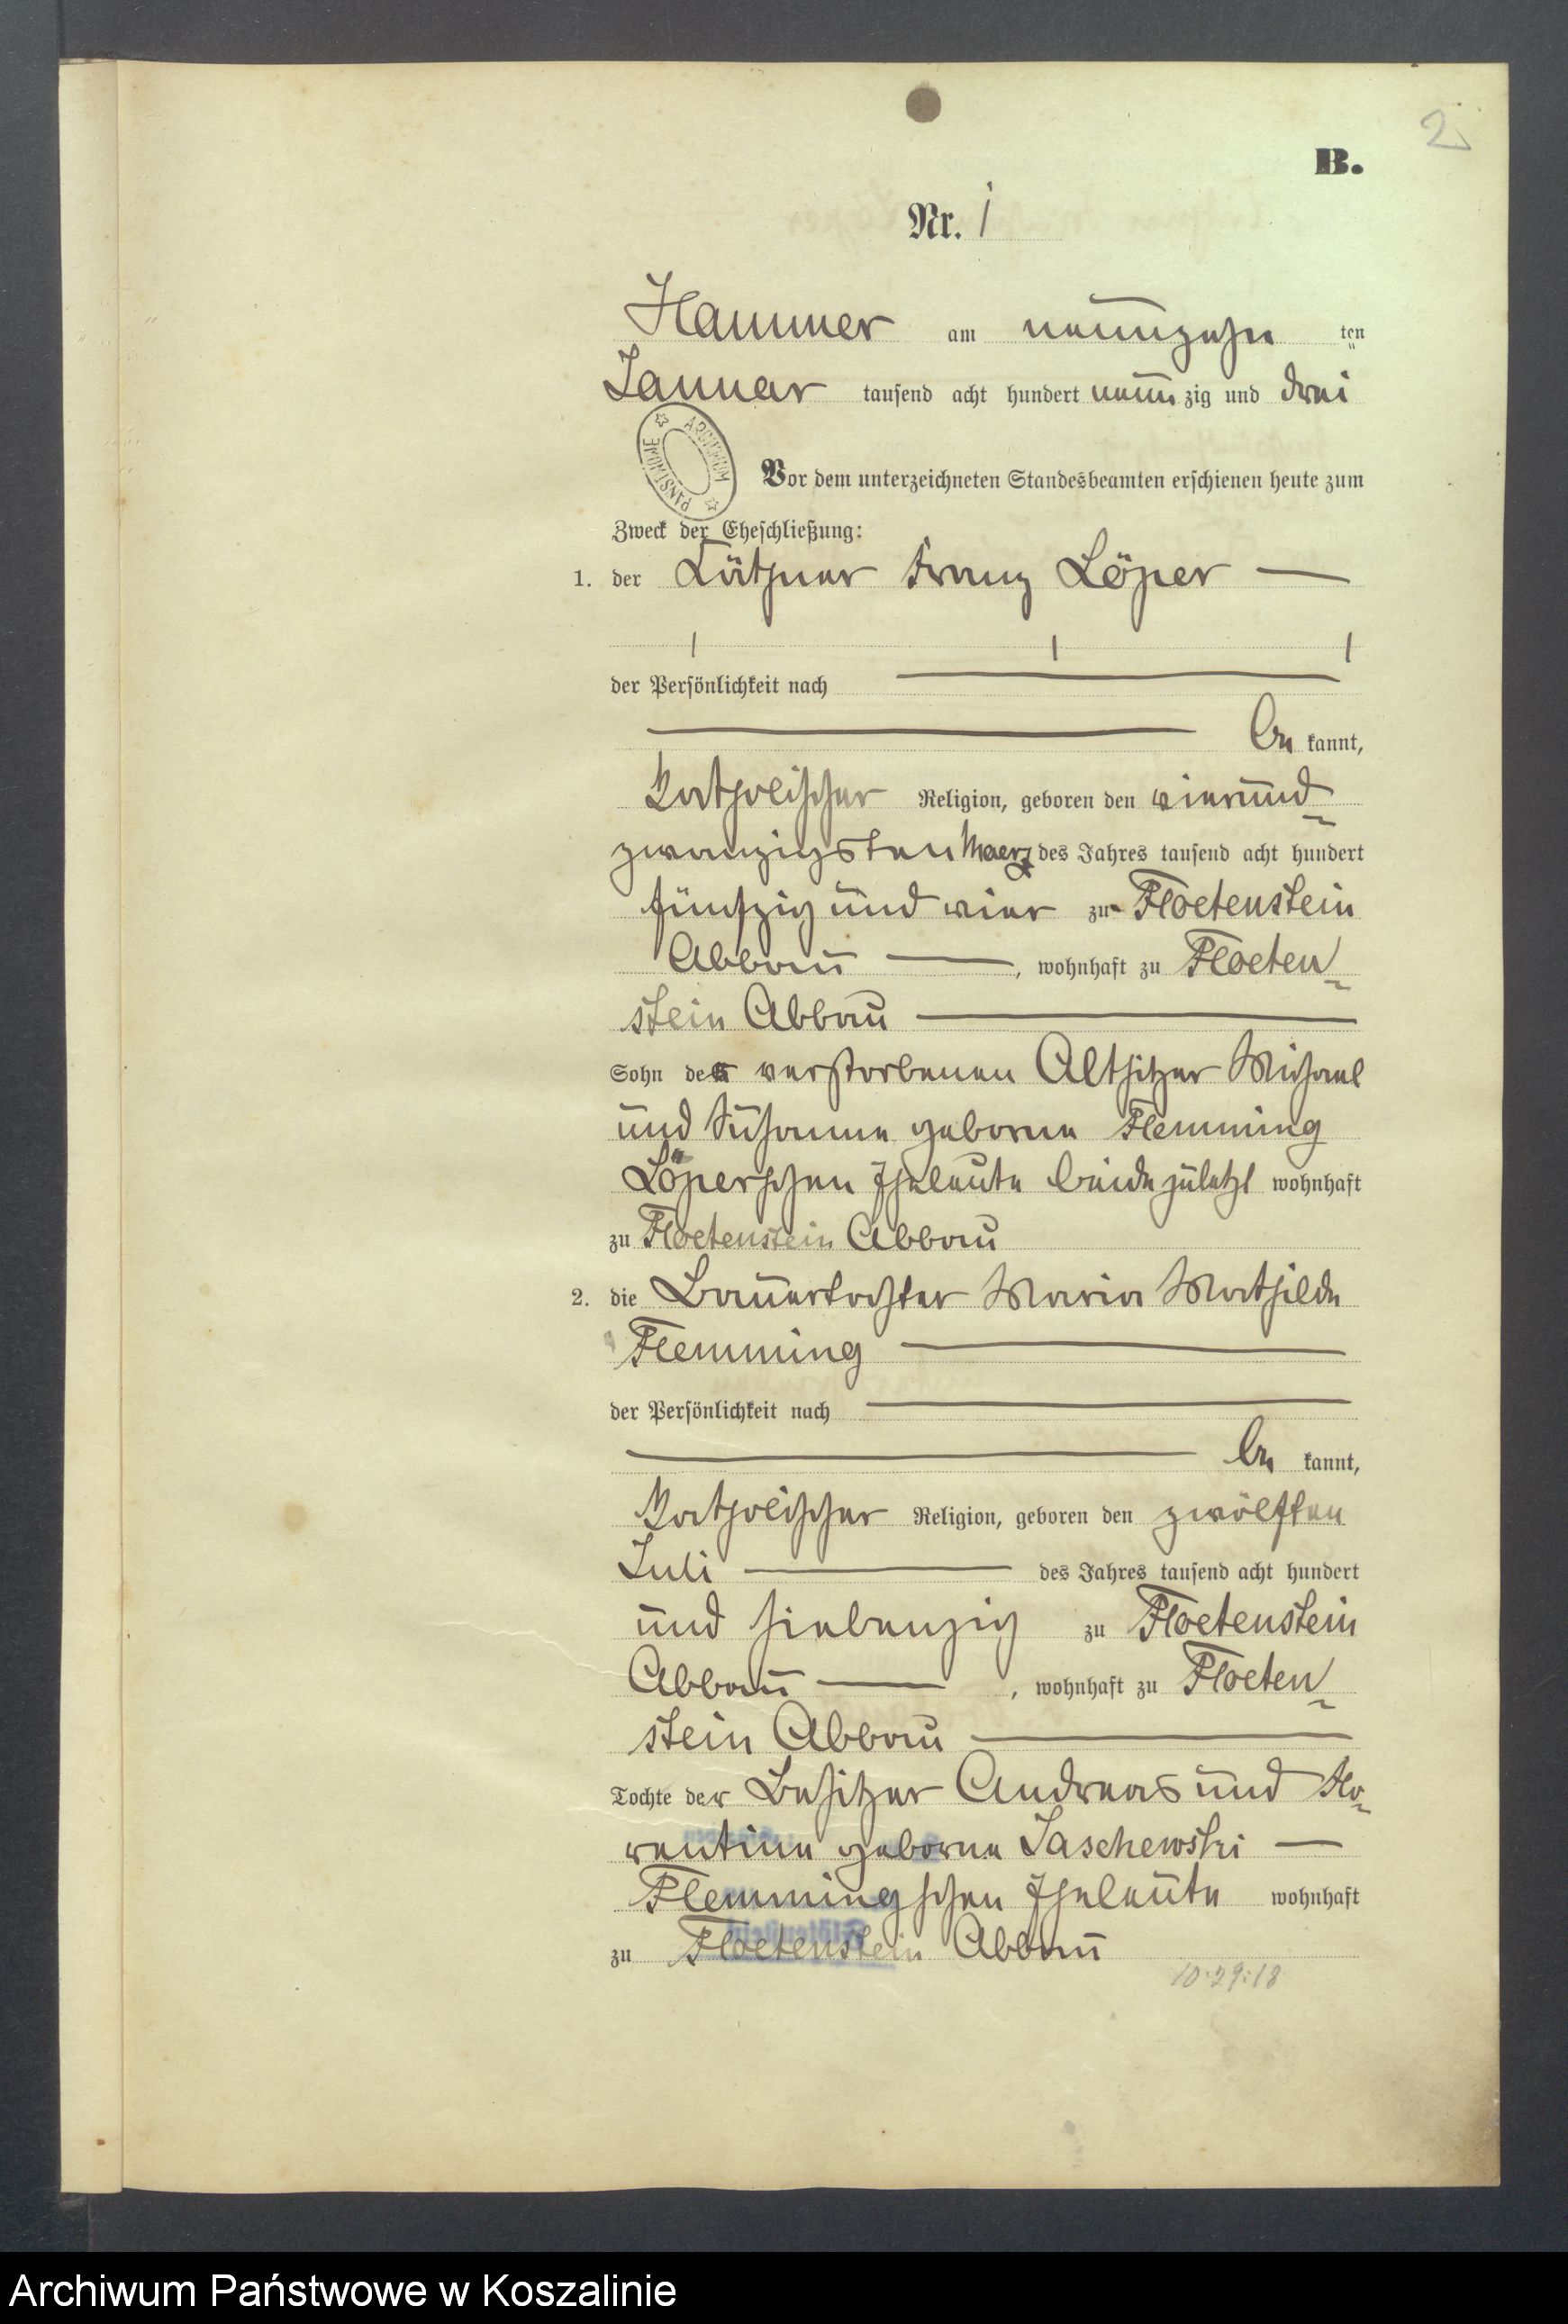 2
B.
Nr. 1
Hammer am neunzehn ten
Januar tausend acht hundert neun zig und drei
ARCHIWUM PAŃSTWOWE
Vor dem unterzeichneten Standesbeamten erschienen heute zum
Zweck der Eheschließung:
1. der Käthner Franz Löper —
der Persönlichkeit nach —
— be kannt,
katholischer Religion, geboren den vierund-
zwanzigsten Maerz des Jahres tausend acht hundert
fünfzig und vier zu Floetenstein
Abbau —, wohnhaft zu Floeten-
stein Abbau —
Sohn der verstorbenen Altsitzer Michael
und Susanna geborne Flemming
Löperschen Eheleute beide zuletzt wohnhaft
zu Floetenstein Abbau
2. die Bauertochter Maria Mathilde
Flemming —
der Persönlichkeit nach —
— be kannt,
katholischer Religion, geboren den zwölften
Juli — des Jahres tausend acht hundert
und siebenzig zu Floetenstein
Abbau —, wohnhaft zu Floeten-
stein Abbau —
Tochte der Besitzer Andreas und Flo-
rentine geborne Jaschewski —
Flemmingschen Eheleute wohnhaft
zu Floetenstein Abbau
10:29:18
Archiwum Państwowe w Koszalinie